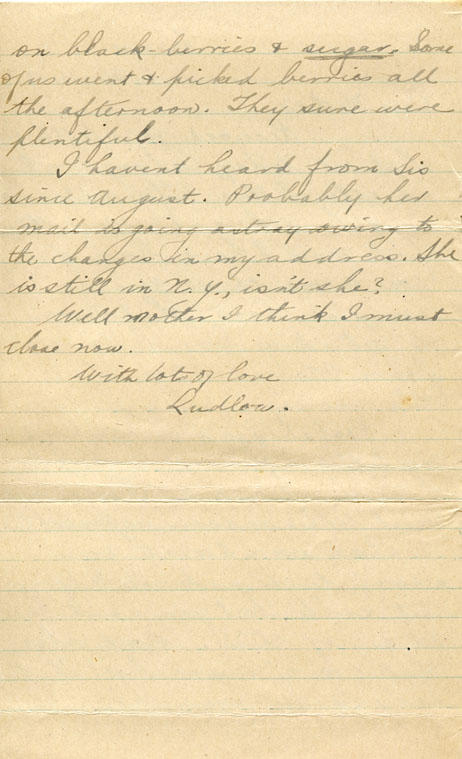 on black-berries & sugar. Some
of us went & picked berries all
the afternoon. They sure were
plentiful.
I havent heard from Sis
since August. Probably her
mail is going astray owing to
the changes in my address. She
is still in N.Y., isn't she?
Well mother I think I must
close now.
With lots of love
Ludlow.